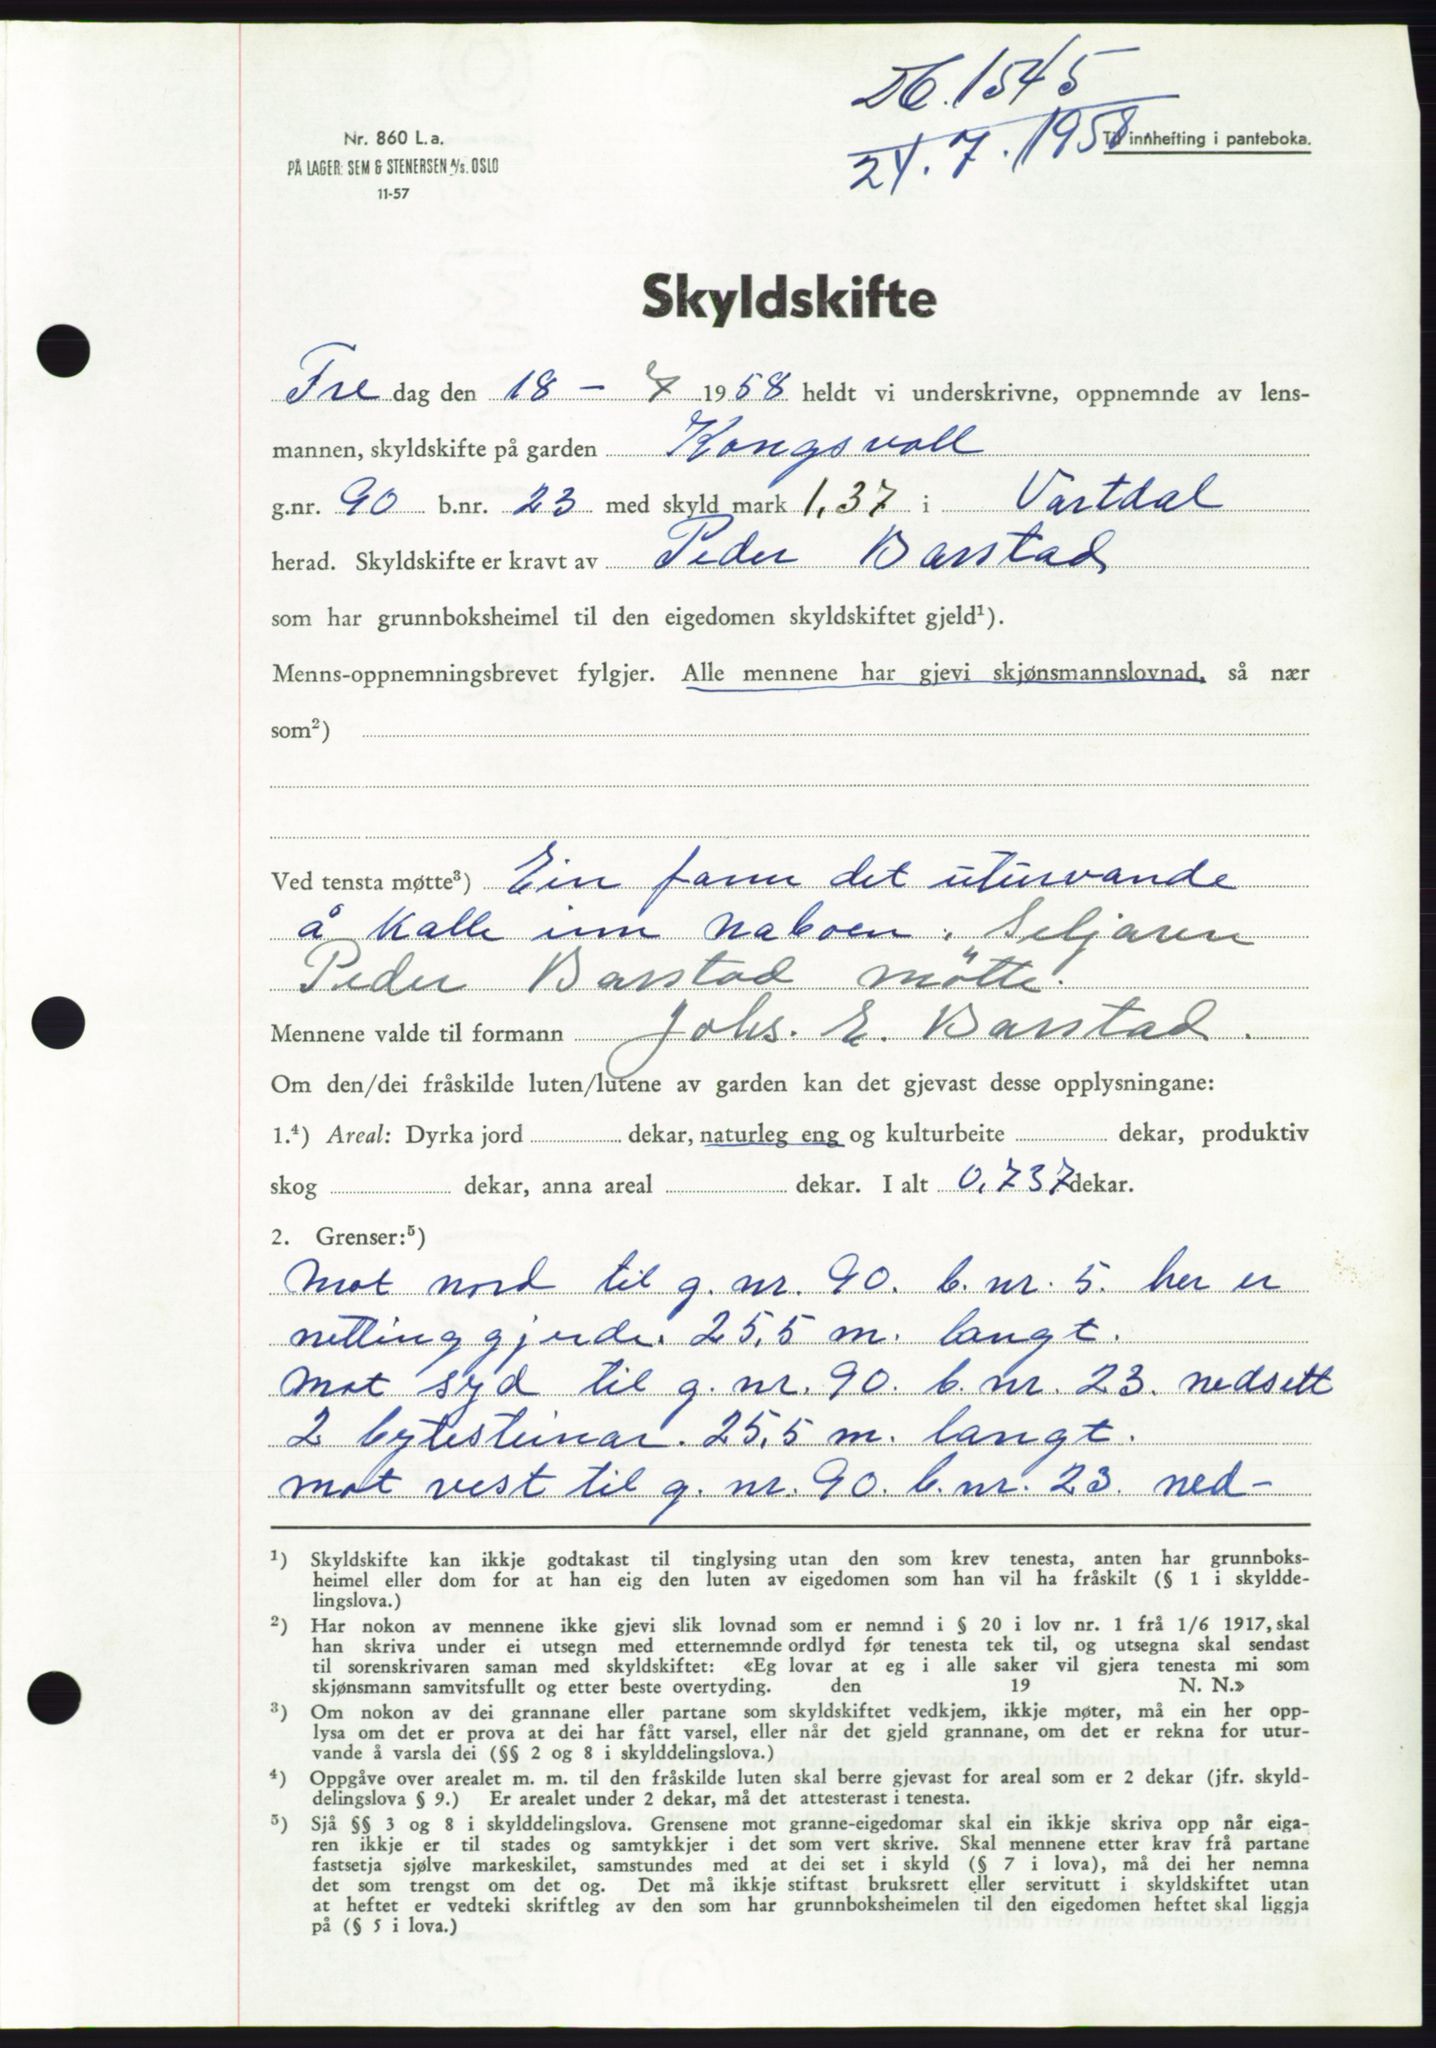 Db. 1545
24.7.1958
Til innhefting i panteboka.
Nr. 860 L.a.
PÅ LAGER: SEM & STENERSEN A/S. OSLO
11-57
Skyldskifte
Fre dag den 18 - 7 1958 heldt vi underskrivne, oppnemnde av lens-
mannen, skyldskifte på garden Kongsvoll
g.nr. 90 b.nr. 23 med skyld mark 1,37 i Vartdal
herad. Skyldskifte er kravt av Peder Barstad
som har grunnboksheimel til den eigedomen skyldskiftet gjeld¹).
Menns-oppnemningsbrevet fylgjer. Alle mennene har gjevi skjønsmannslovnad, så nær
som²)
Ved tensta møtte³) Ein fann det uturvande
å kalle inn naboen. Seljaren
Peder Barstad mötte.
Mennene valde til formann Johs. E. Barstad.
Om den/dei fråskilde luten/lutene av garden kan det gjevast desse opplysningane:
1.⁴) Areal: Dyrka jord dekar, naturleg eng og kulturbeite dekar, produktiv
skog dekar, anna areal dekar. I alt 0,737 dekar.
2. Grenser:⁵)
Mot nord til g. nr. 90. b. nr. 5. her er
nettinggjerde. 25,5 m. langt.
Mot syd til g. nr. 90. b. nr. 23. nedsett
2 bytesteinar. 25,5 m. langt.
mot vest til g. nr. 90. b. nr. 23. ned-
¹) Skyldskifte kan ikkje godtakast til tinglysing utan den som krev tenesta, anten har grunnboks-
heimel eller dom for at han eig den luten av eigedomen som han vil ha fråskilt (§ 1 i skyldde-
lingslova.)
²) Har nokon av mennene ikke gjevi slik lovnad som er nemnd i § 20 i lov nr. 1 frå 1/6 1917, skal
han skriva under ei utsegn med etternemnde ordlyd før tenesta tek til, og utsegna skal sendast
til sorenskrivaren saman med skyldskiftet: «Eg lovar at eg i alle saker vil gjera tenesta mi som
skjønsmann samvitsfullt og etter beste overtyding. den 19 N. N.»
³) Om nokon av dei grannane eller partane som skyldskiftet vedkjem, ikkje møter, må ein her opp-
lysa om det er prova at dei har fått varsel, eller når det gjeld grannane, om det er rekna for utur-
vande å varsla dei (§§ 2 og 8 i skylddelingslova.)
⁴) Oppgåve over arealet m. m. til den fråskilde luten skal berre gjevast for areal som er 2 dekar (jfr. skyld-
delingslova § 9.) Er arealet under 2 dekar, må det attesterast i tenesta.
⁵) Sjå §§ 3 og 8 i skylddelingslova. Grensene mot granne-eigedomar skal ein ikkje skriva opp når eiga-
ren ikkje er til stades og samtykkjer i det som vert skrive. Skal mennene etter krav frå partane
fastsetja sjølve markeskilet, samstundes med at dei set i skyld (§ 7 i lova), må dei her nemna
det som trengst om det og. Det må ikkje stiftast bruksrett eller servitutt i skyldskiftet utan
at heftet er vedteki skriftleg av den som har grunnboksheimelen til den eigedomen heftet skal liggja
på (§ 5 i lova.)